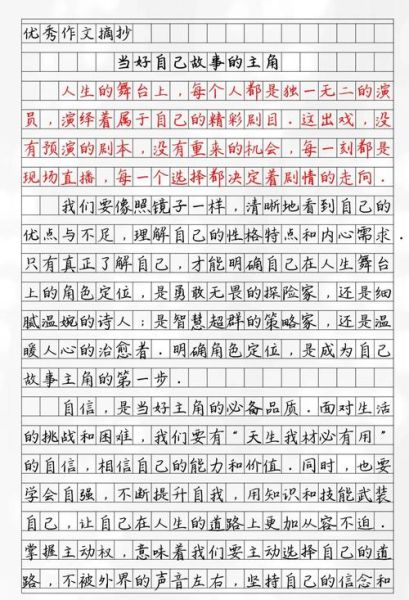 优秀作文摘抄
当好自己故事的主角
人生的舞台上，每个人都是独一无二的演
员，演绎着属于自己的精彩剧目．这出戏，没
有预演的剧本，没有重来的机会，每一刻都是
现场直播，每一个选择都决定着剧情的走向．
我们要像照镜子一样，清晰地看到自己的
优点与不足，理解自己的性格特点和内心需求．
只有真正了解自己，才能明确自己在人生舞台
上的角色定位，是勇敢无畏的探险家，还是细
腻温婉的诗人；是智慧超群的策略家，还是温
暖人心的治愈者．明确角色定位，是成为自己
故事主角的第一步．
自信，是当好主角的必备品质．面对生活
的挑战和困难，我们要有“天生我材必有用”
的自信，相信自己的能力和价值．同时，也要
学会自强，不断提升自我，用知识和技能武装
自己，让自己在人生的道路上更加从容不迫．
掌握主动权，意味着我们要主动选择自己的道
路，不被外界的声音左右，坚持自己的信念和